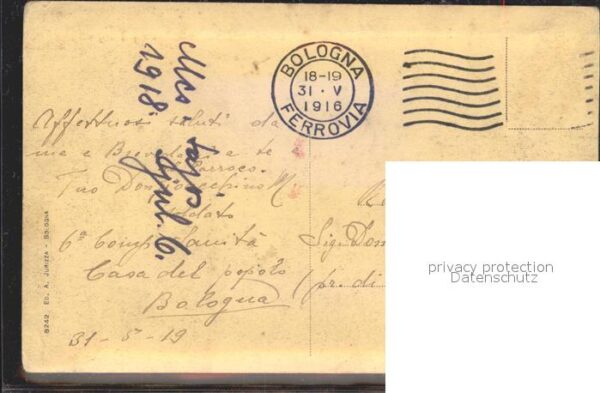 BOLOGNA
18-19
31 · V
1916
FERROVIA
1918.
Affettuosi saluti da
me e a te e
Parroco.
Tuo Don M.
Soldato
6ª Comp. Sanità
Casa del popolo
Bologna
31-5-19
Sig. Don
(pr. di
8242 ED. A. JURIZZA - BOLOGNA
privacy protection
Datenschutz